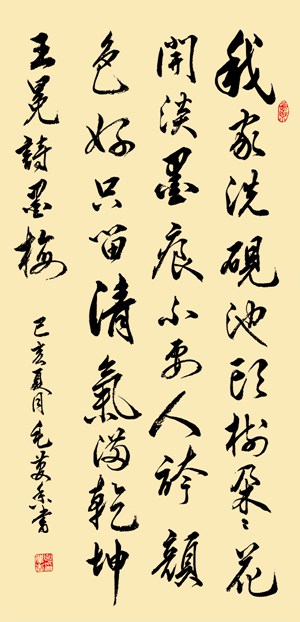 我家洗硯池頭樹朵々花
開淡墨痕不要人誇顏
色好只留清氣滿乾坤
王冕詩墨梅
己亥夏月毛書